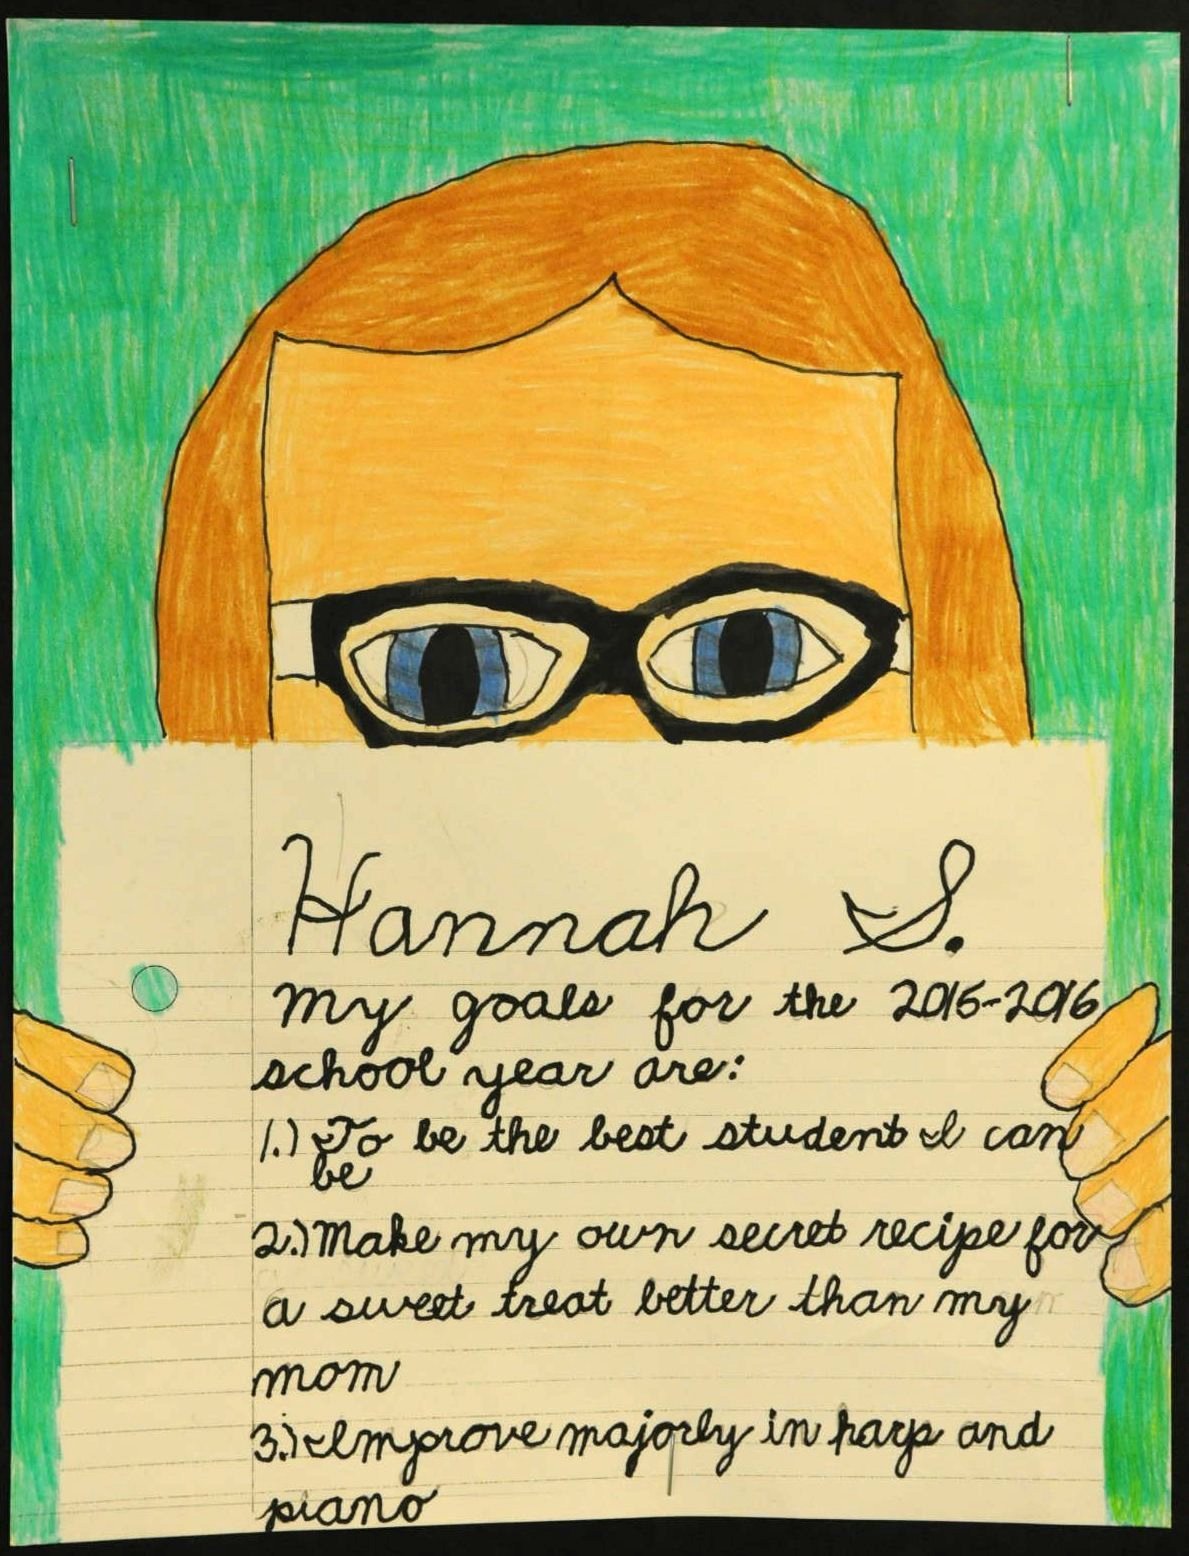 Hannah S.
My goals for the 2015-2016
school year are:
1.) To be the best student I can
be
2.) Make my own secret recipe for
a sweet treat better than my
mom
3.) Improve majorly in harp and
piano